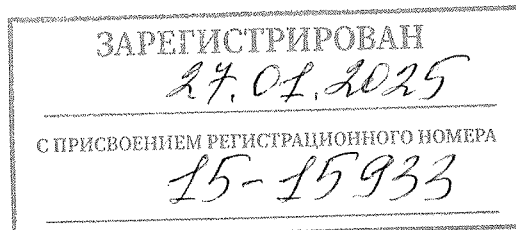 ЗАРЕГИСТРИРОВАН
27.01.2025
С ПРИСВОЕНИЕМ РЕГИСТРАЦИОННОГО НОМЕРА
15-15933